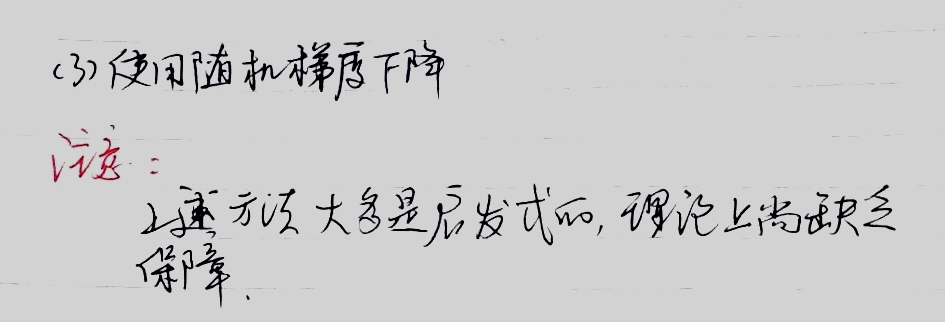 (3)使用随机梯度下降
注意:
上述方法大多是启发式的,理论上尚缺乏
保障.